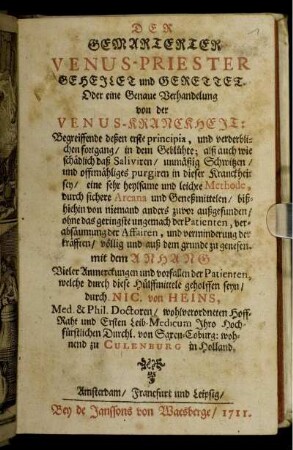 DER
GEMARTERTER
VENUS-PRIESTER
GEHEILET und GERETTET.
Oder eine Genaue Verhandelung
von der
VENUS-KRANCKHEIT:
Begreiffende deßen erste principia, und verderbli-
chen fortgang/ in dem Geblühte; alß auch wie
schädlich daß Saliviren/ unmäßig Schwitzen/
und offtmähliges purgiren in dieser Kranckheit
sey/ eine sehr heylsame und leichte Methode,
durch sichere Arcana und Geneßmittelen/ biß-
hiehin von niemand anders zuvor außgefunden/
ohne das geringste ungemach der Patienten, ver-
absäumung der Affairen, und verminderung der
kräfften/ völlig und auß dem grunde zu genesen.
mit dem ANHANG
Vieler Anmerckungen und vorfällen der Patienten,
welche durch diese Hülffmittele geholffen seyn/
durch NIC. von HEINS,
Med. & Phil. Doctoren/ wohlverordneten Hoff-
Raht und Ersten Leib-Medicum Ihro Hoch-
fürstlichen Durchl. von Saxen-Coburg: woh-
nend zu CULENBURG in Holland.
Amsterdam/ Franckfurt und Leipsig/
Bey de Janssons von Waesberge/ 1711.